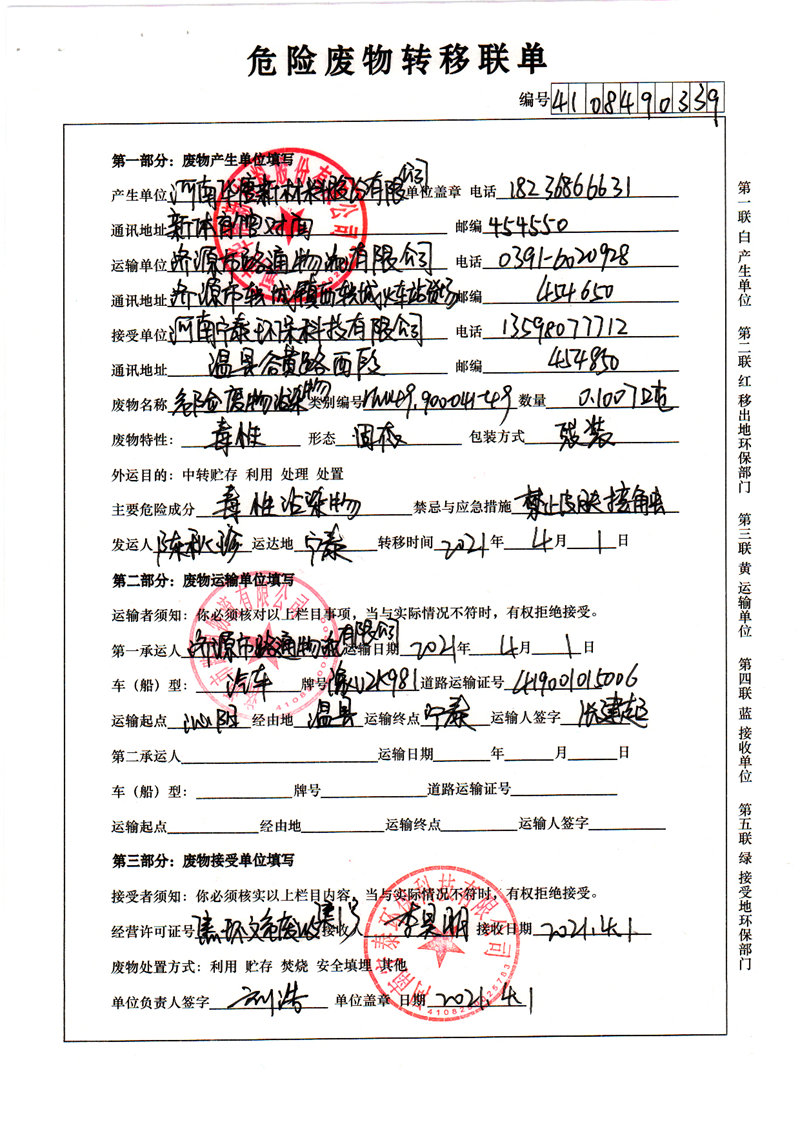 危险废物转移联单
编号 4108490339
第一部分：废物产生单位填写
产生单位 河南 新材料股份有限公司 单位盖章 电话 18236866631
通讯地址 新体育馆对面 邮编 454550
运输单位 济源市路通物流有限公司 电话 0391-6020928
通讯地址 济源市轶城镇西轶城火车站货场 邮编 454650
接受单位 河南宁泰环保科技有限公司 电话 13598077712
通讯地址 温县谷黄路西段 邮编 454850
废物名称 危险废物沾染物 类别编号 HW49.900-041-49 数量 0.1007吨
废物特性： 毒性 形态 固态 包装方式 袋装
外运目的：中转贮存 利用 处理 处置
主要危险成分 毒性沾染物 禁忌与应急措施 禁止皮肤接触
发运人 陈秋珍 运达地 宁泰 转移时间 2021 年 4 月 1 日
第二部分：废物运输单位填写
运输者须知：你必须核对以上栏目事项，当与实际情况不符时，有权拒绝接受。
第一承运人 济源市路通物流有限公司 运输日期 2021 年 4 月 1 日
车（船）型： 汽车 牌号 豫U2K981 道路运输证号 419001015006
运输起点 沁阳 经由地 温县 运输终点 宁泰 运输人签字 建起
第二承运人 运输日期 年 月 日
车（船）型： 牌号 道路运输证号
运输起点 经由地 运输终点 运输人签字
第三部分：废物接受单位填写
接受者须知：你必须核实以上栏目内容，当与实际情况不符时，有权拒绝接受。
经营许可证号 接收人 李昊明 接收日期 2021.4.1
废物处置方式：利用 贮存 焚烧 安全填埋 其他
单位负责人签字 刘浩 单位盖章 日期 2021.4.1
第一联 白 产生单位
第二联 红 移出地环保部门
第三联 黄 运输单位
第四联 蓝 接收单位
第五联 绿 接受地环保部门